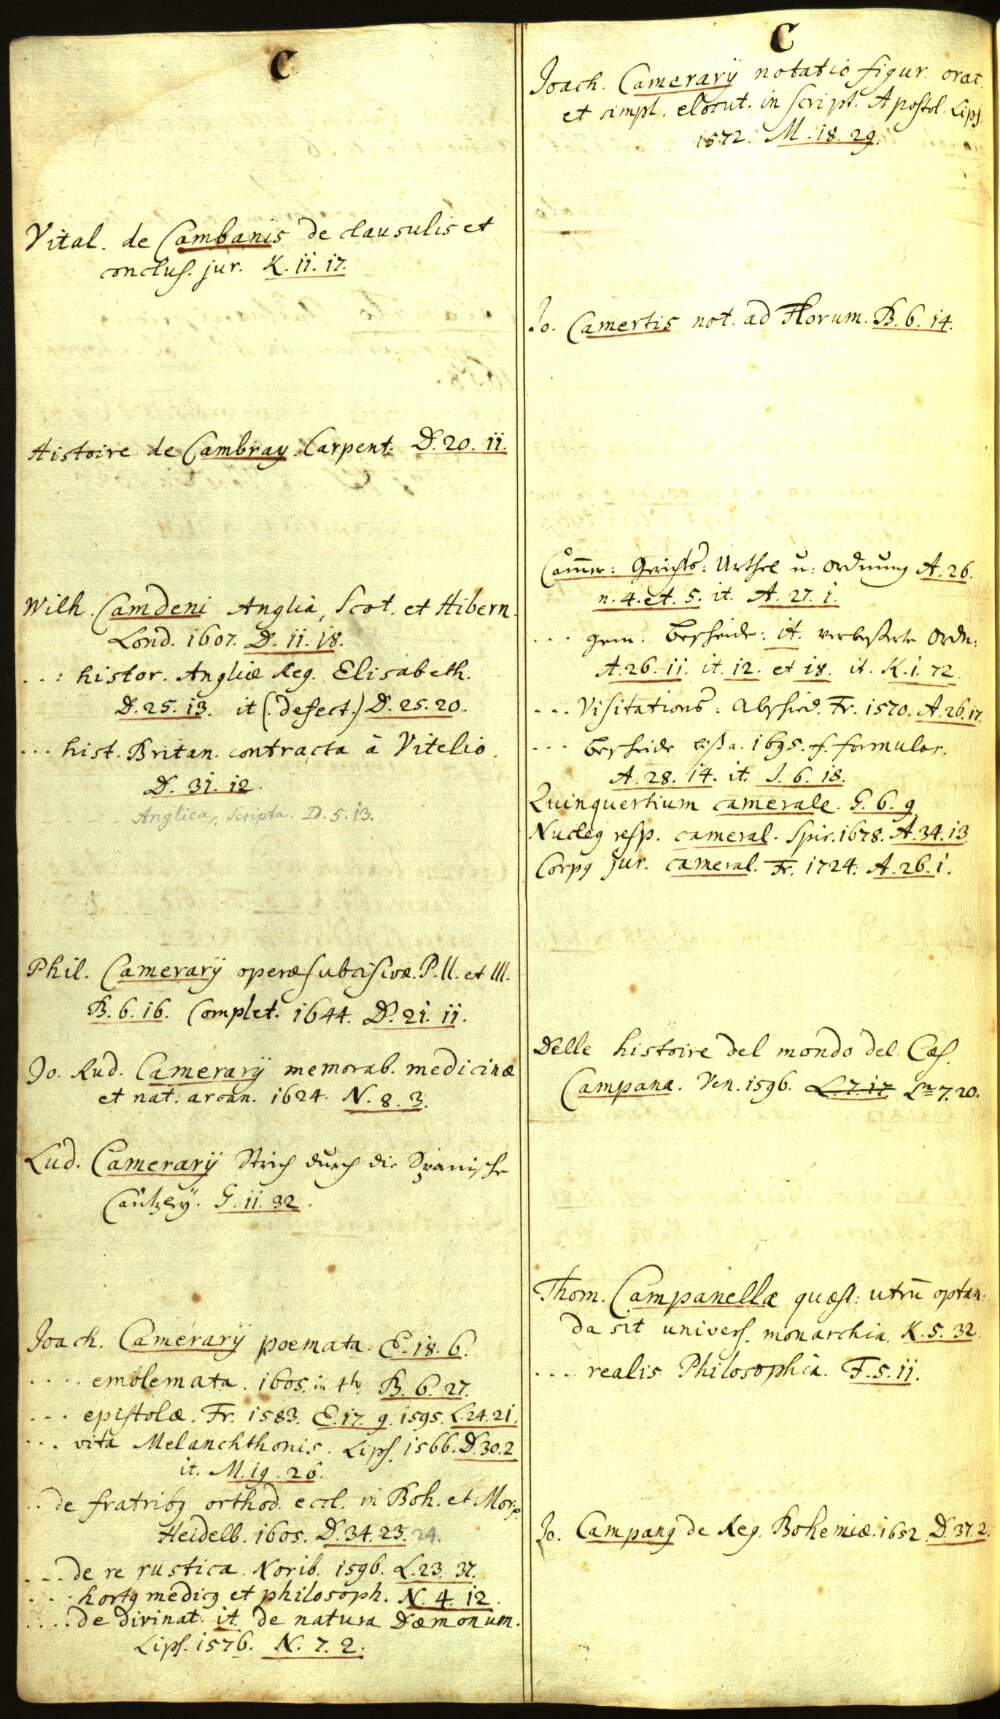 C
Vital. de Cambanis de clausulis et
conclus. jur. K. 11. 17.
Histoire de Cambray. Carpent. D. 20. 11.
Wilh. Camdeni Anglia, Scot. et Hibern.
Lond. 1607. D. 11. 18.
... histor. Angliæ Reg. Elisabeth.
D. 25. 13. it (defect.) D. 25. 20.
... hist. Britan. contracta à Vitelio.
D. 31. 12.
Anglica, Scripta. D. 5. 13.
Phil. Camerarÿ operæ subcisivæ. P. II. et III.
B. 6. 16. Complet. 1644. D. 21. 11.
Jo. Rud. Camerarÿ memorab. medicinæ
et nat. arcan. 1624. N. 8. 3.
Lud. Camerarÿ Strich durch die Spanische
Cantzley. G. 11. 32.
Joach. Camerarÿ poemata. E. 18. 6.
.... emblemata. 1605. in 4to B. 6. 27.
... epistolæ. Fr. 1583. E. 17. 9. 1595. L. 24. 21.
... vita Melanchthonis. Lips. 1566. D. 30. 2
it. M. 19. 26.
.. de fratribg orthod. eccl. in Boh. et Mor.
Heidelb. 1605. D. 34. 23. 24.
... de re rustica. Norib. 1596. L. 23. 37.
... hortg medicg et philosoph. N. 4. 12.
.... de divinat. it. de natura Dæmonum.
Lips. 1576. N. 7. 2.
C
Joach. Camerarÿ notatio figur. orat.
et simpl. elocut. in script. Apostol. Lips.
1572. M. 18. 29.
Jo. Camertis not. ad Florum. B. 6. 14.
Cam̅er: Gerichts: Urthel u: Ordnung A. 26.
n. 4. et. 5. it. A. 27. 1.
... gem. bescheide: it. verbesserte Ordn:
A. 26. 11. it. 12. et 18. it. K. 1. 72.
... Visitations: Abschied. Fr. 1570. A. 26. 17.
... bescheide biß a. 1695. formular.
A. 28. 14. it. J. 6. 18.
Quinquertium camerale. G. 6. 9
Nucleg resp. cameral. Spir. 1678. A. 34. 13
Corpg jur. cameral. Fr. 1724. A. 26. 1.
Delle histoire del mondo del Cæs.
Campana. Ven. 1596. L. 7. 17 Ln 7. 20.
Thom. Campanellæ quæst: utru̅ optan:
da sit univers. monarchia. K. 5. 32.
... realis Philosophia. F. 5. 11.
Jo. Campang de Reg. Bohemiæ. 1652. D. 37. 2.